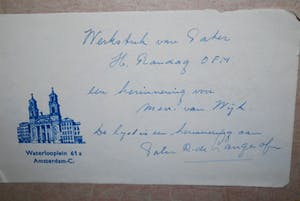 Werkstuk van Pater
H. Raadag O.F.M
een herinnering voor
mevr. van Wijk
De lijst is een herinnering aan
Pater
Waterlooplein 61a
Amsterdam-C.